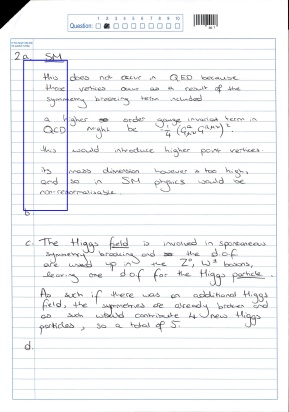 1 2 3 4 5 6 7 8 9 10
Question:
2a SM
this does not occur in QED because
those vertices occur as a result of the
symmetry breaking term included
a higher order gauge invariant term in
QCD might be
this would introduce higher point vertices.
its mass dimension however is too high
and so in SM physics would be
non-renormalisable.
b
c. The Higgs field is involved in spontaneous
symmetry breaking and so the d.o.f
are used up in the Z⁰, W± bosons,
leaving one d.o.f for the Higgs particle.
As such if there was an additional Higgs
field, the symmetries are already broken and
as such would contribute 4 new Higgs
particles, so a total of 5.
d.